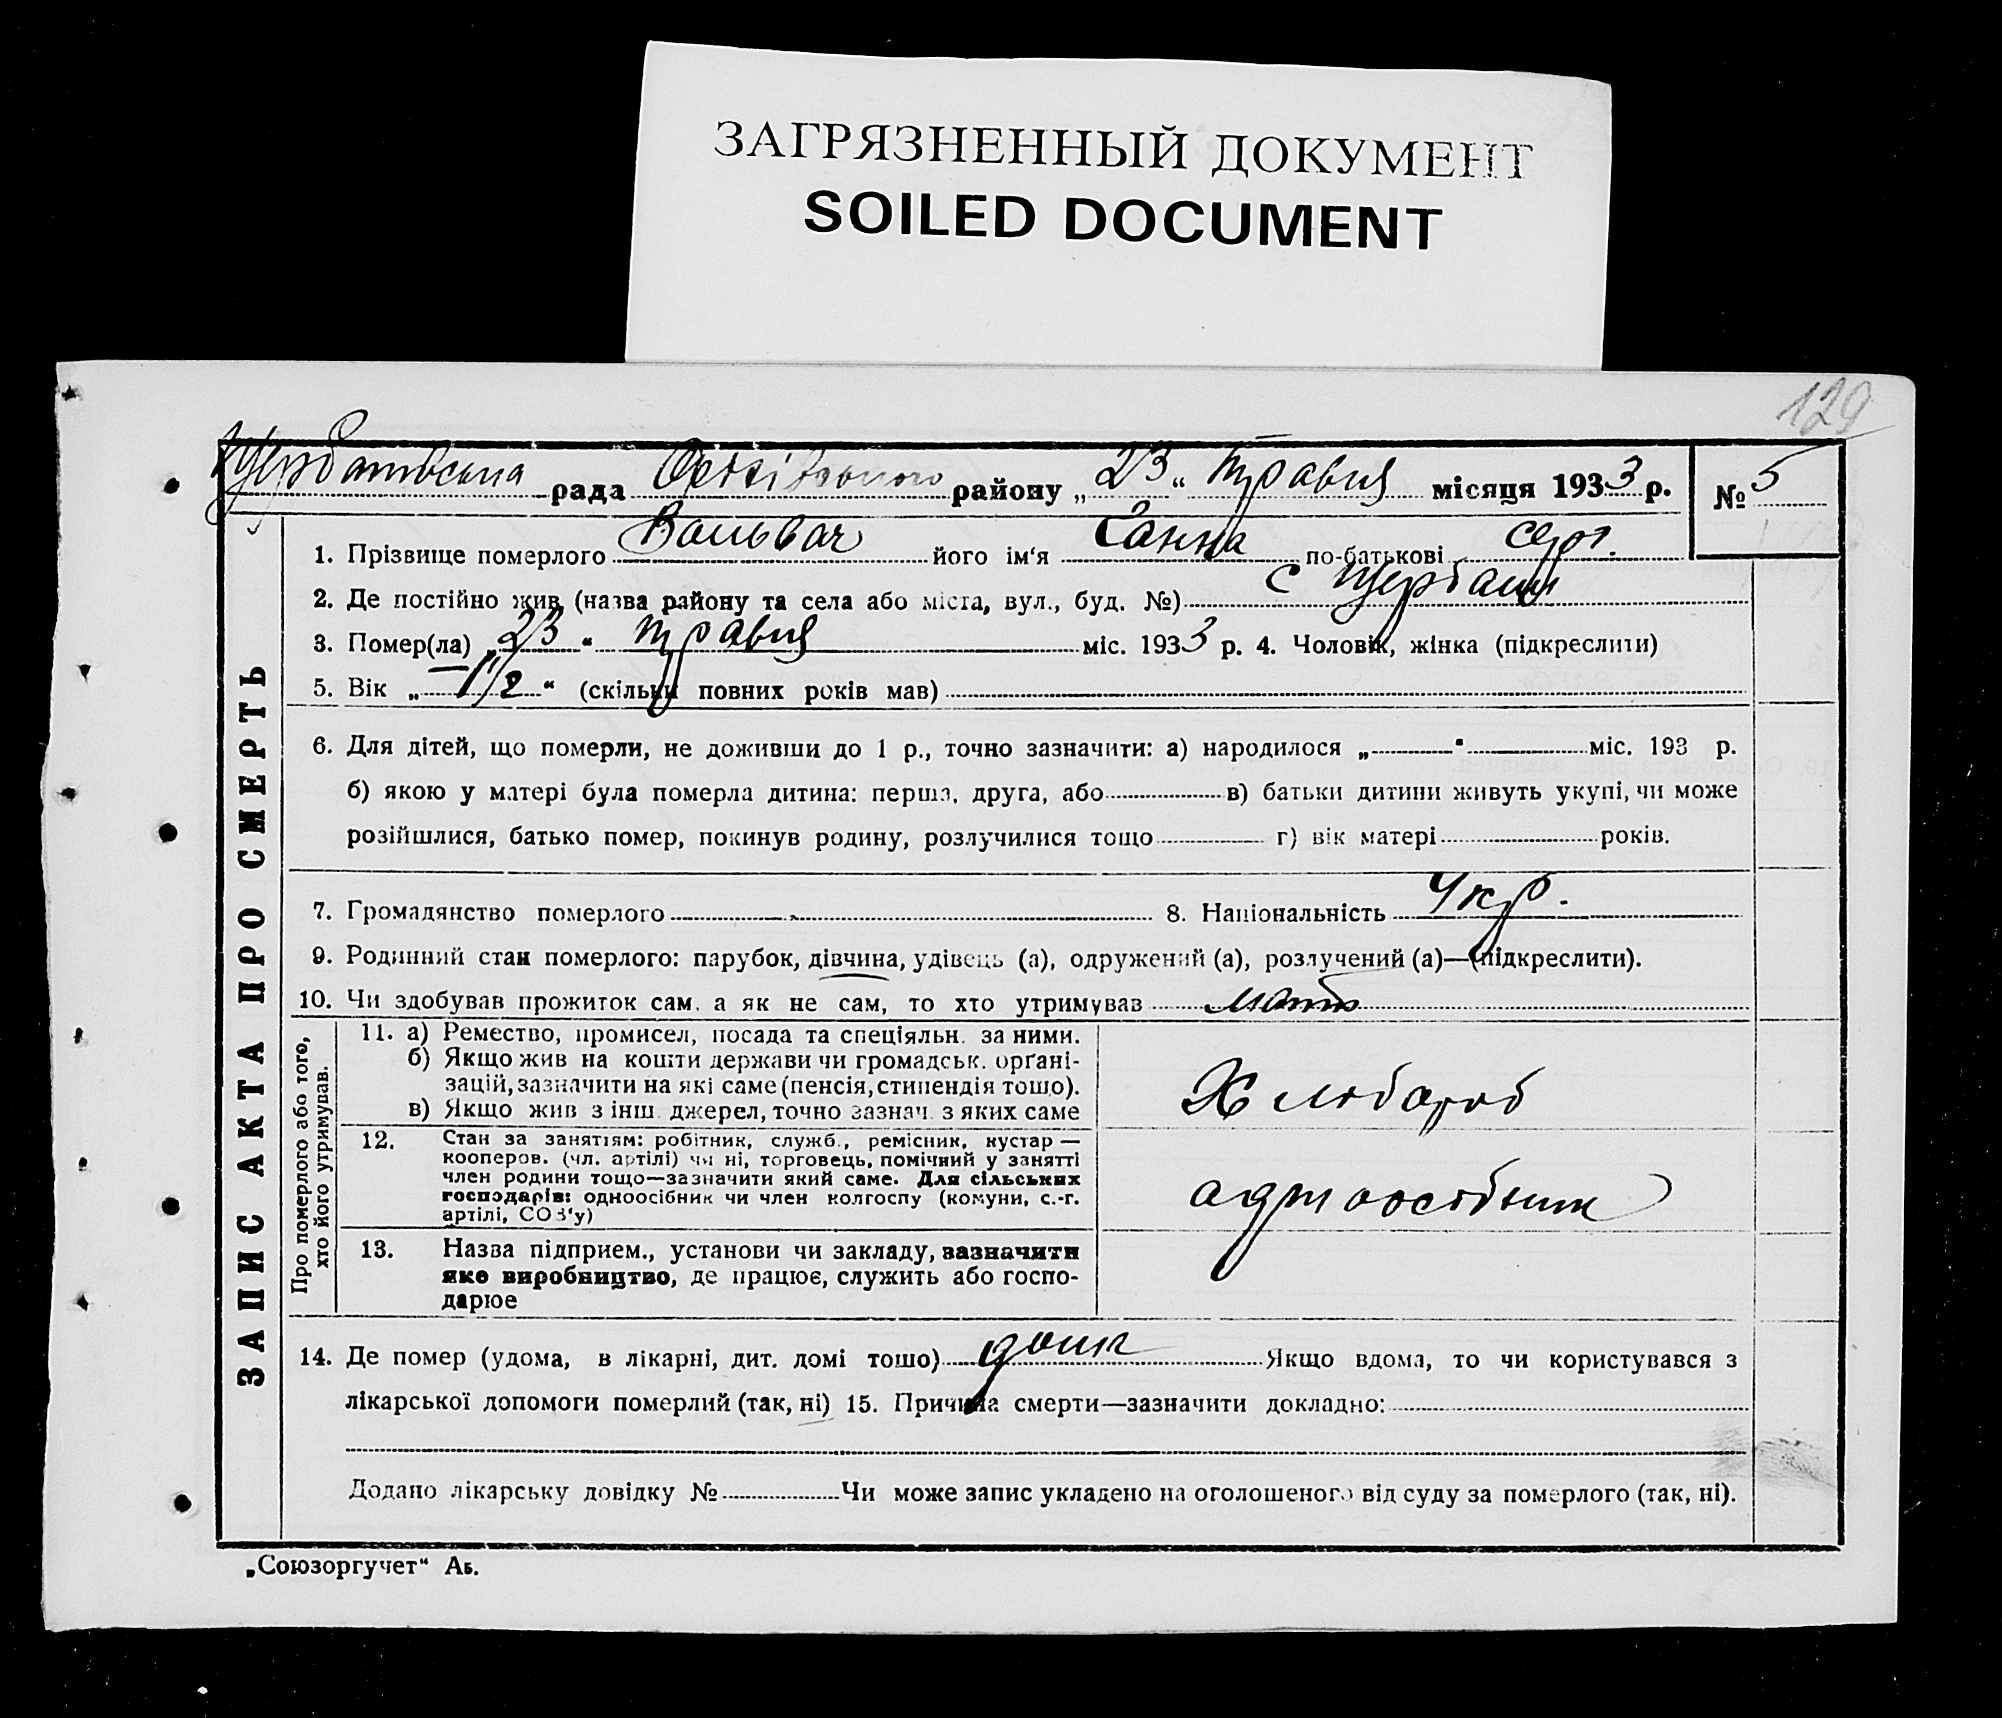 ЗАГРЯЗНЕННЫЙ ДОКУМЕНТ
SOILED DOCUMENT
129
рада району „23“ травня місяця 1933 р. № 5
ЗАПИС АКТА ПРО СМЕРТЬ
1. Прізвище померлого Вольвач його ім'я Ганна по-батькові Серг.
2. Де постійно жив (назва району та села або міста, вул., буд. №) с
3. Помер(ла) „23“ травня міс. 1933 р. 4. Чоловік, жінка (підкреслити)
5. Вік „1 1/2“ (скільки повних років мав)
6. Для дітей, що померли, не доживши до 1 р., точно зазначити: а) народилося „ “ міс. 193 р.
б) якою у матері була померла дитина: перша, друга, або в) батьки дитини живуть укупі, чи може
розійшлися, батько помер, покинув родину, розлучилися тощо г) вік матері років.
7. Громадянство померлого 8. Національність Укр.
9. Родинний стан померлого: парубок, дівчина, удівець (а), одружений (а), розлучений (а)—(підкреслити).
10. Чи здобував прожиток сам, а як не сам, то хто утримував мати
Про померлого або того,
хто його утримував.
11. а) Ремество, промисел, посада та спеціяльн. за ними.
б) Якщо жив на кошти держави чи громадськ. орґані-
зацій, зазначити на які саме (пенсія, стипендія тощо).
в) Якщо жив з інш. джерел, точно зазнач. з яких саме
Хлібороб
12. Стан за занятіям: робітник, служб., ремісник, кустар —
кооперов. (чл. артілі) чи ні, торговець, помічний у занятті
член родини тощо—зазначити який саме. Для сільських
господарів: одноосібник чи член колгоспу (комуни, с.-г.
артілі, СОЗ'у)
одноосібник
13. Назва підприєм., установи чи закладу, зазначити
яке виробництво, де працює, служить або госпо-
дарює
14. Де помер (удома, в лікарні, дит. домі тошо) дома Якщо вдома, то чи користувався з
лікарської допомоги померлий (так, ні) 15. Причина смерти—зазначити докладно:
Додано лікарську довідку № Чи може запис укладено на оголошеного від суду за померлого (так, ні).
„Союзоргучет“ Аб.